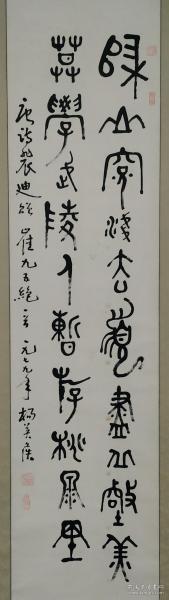 歸山深淺去須盡丘壑美
莫學武陵人暫游桃原里
唐詩裴迪送崔九五絕一首 一九七九年 楊